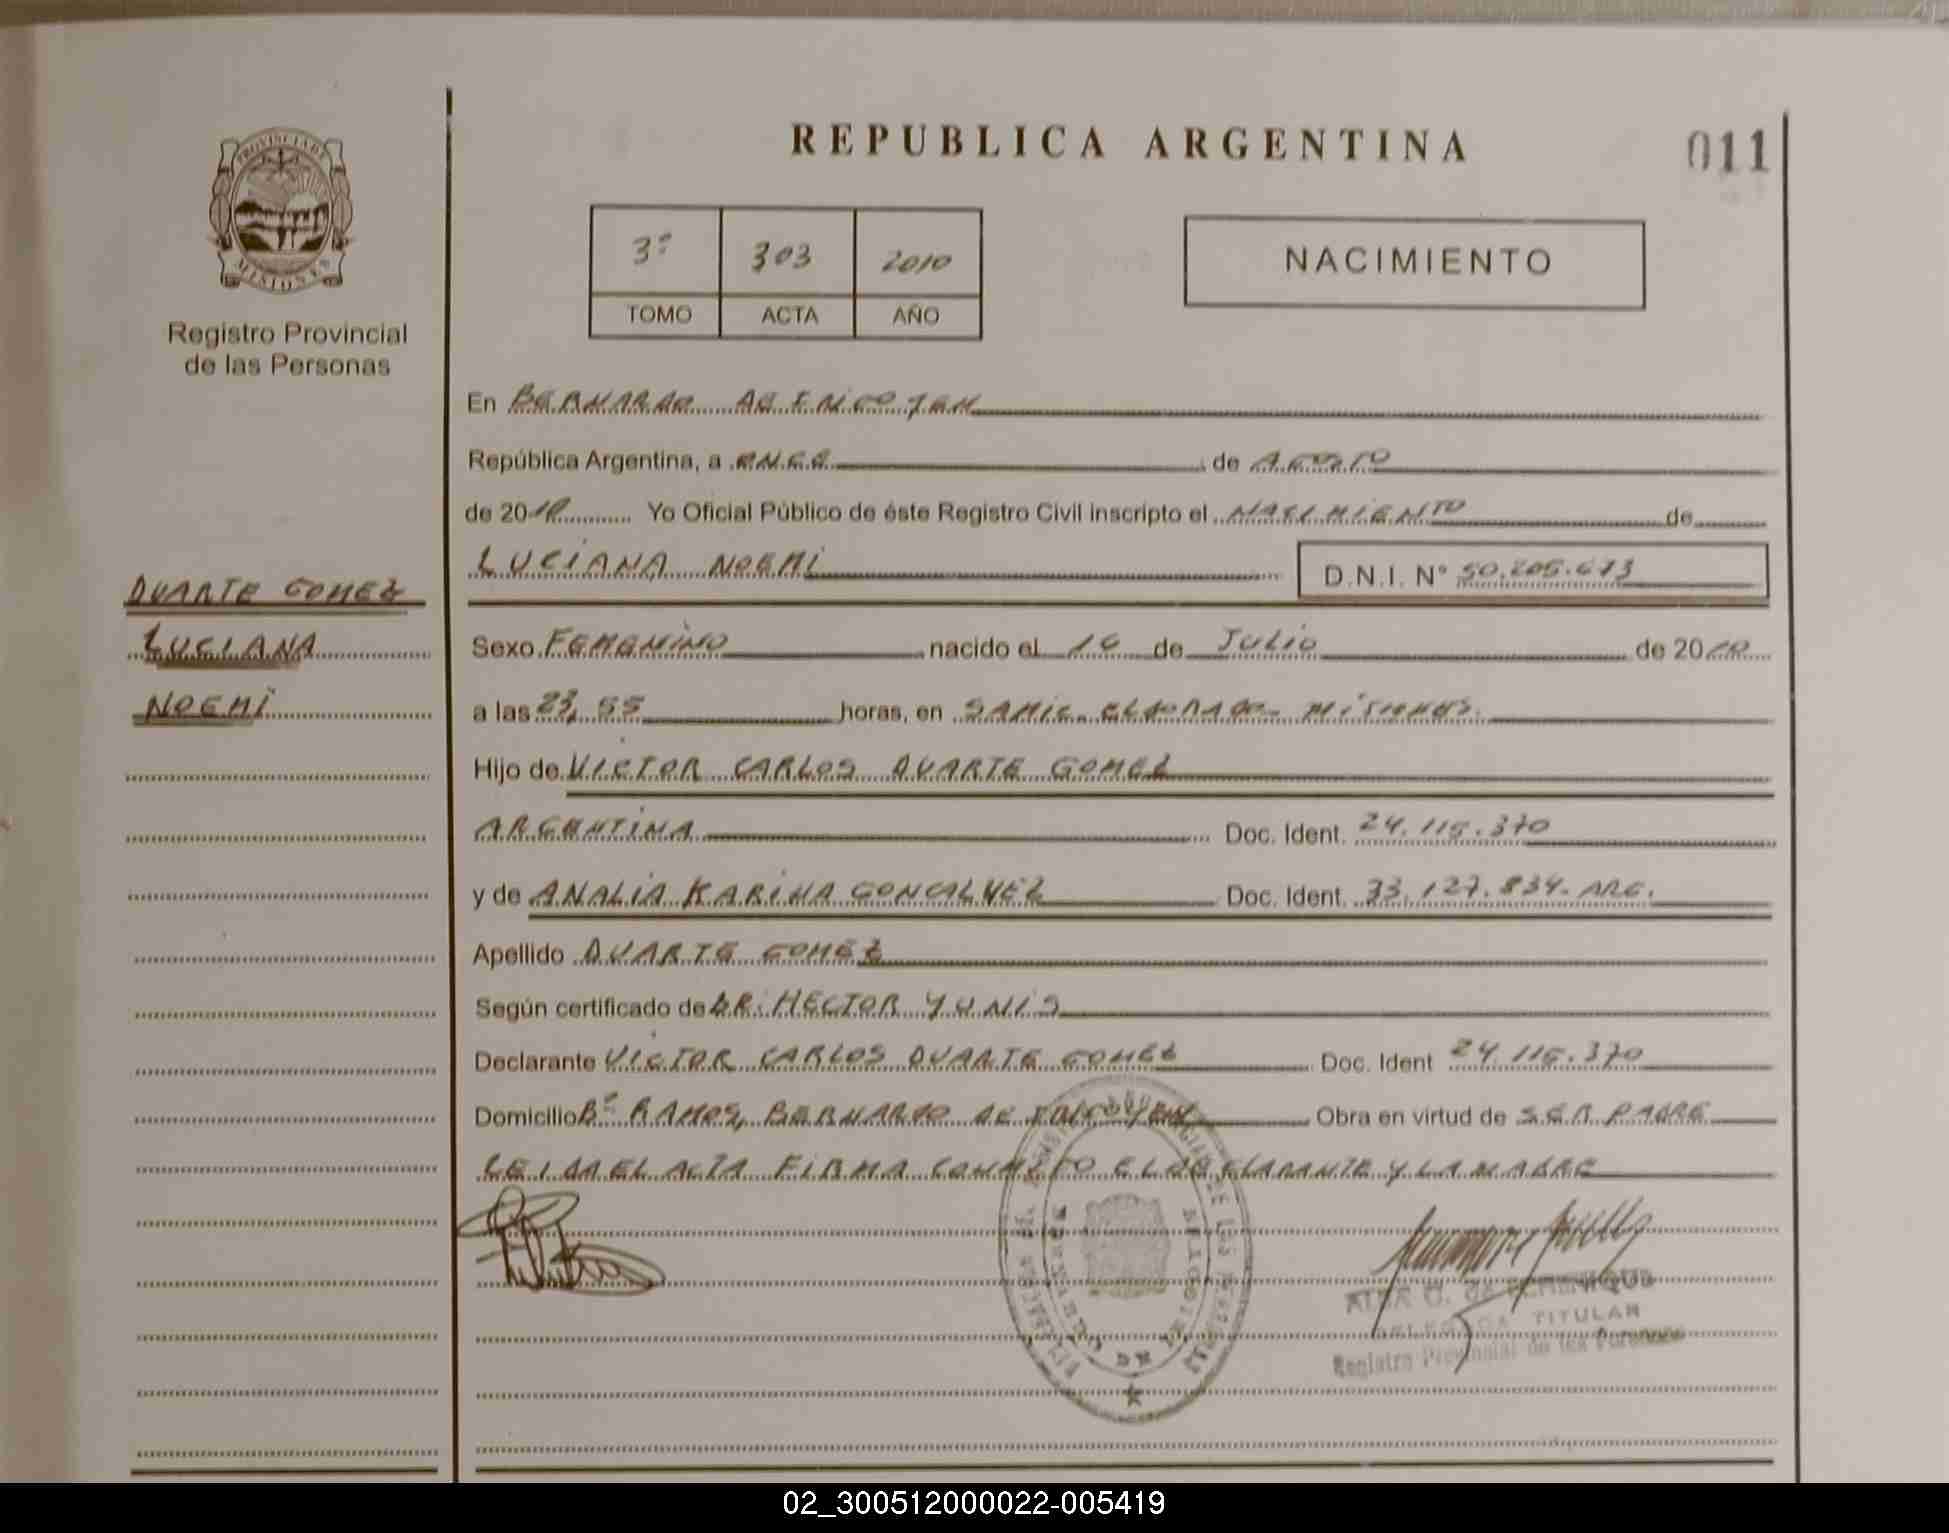 REPUBLICA ARGENTINA
011
PROVINCIA DE
MISIONES
Registro Provincial
de las Personas
3º 303 2010
TOMO ACTA AÑO
NACIMIENTO
En BERNARDO DE IRIGOYEN
República Argentina, a ONCE de AGOSTO
de 2010 Yo Oficial Público de éste Registro Civil inscripto el NACIMIENTO de
LUCIANA NOEMI D.N.I. Nº 50.205.673
DUARTE GOMEZ
LUCIANA
NOEMI
Sexo FEMENINO nacido el 16 de JULIO de 2010
a las 23,55 horas, en SAMIC ELDORADO MISIONES.
Hijo de VICTOR CARLOS DUARTE GOMEZ
ARGENTINA Doc. Ident. 24.115.370
y de ANALIA KARINA GONCALVEZ Doc. Ident. 33.127.834. ARG.
Apellido DUARTE GOMEZ
Según certificado de DR. HECTOR YUNIS
Declarante VICTOR CARLOS DUARTE GOMEZ Doc. Ident 24.115.370
Domicilio Bº RAMOS, BERNARDO DE IRIGOYEN Obra en virtud de SER PADRE
LEIDA EL ACTA FIRMA CONMIGO EL DECLARANTE Y LA MADRE
TITULAR
Registro Provincial de las Personas
02_300512000022-005419